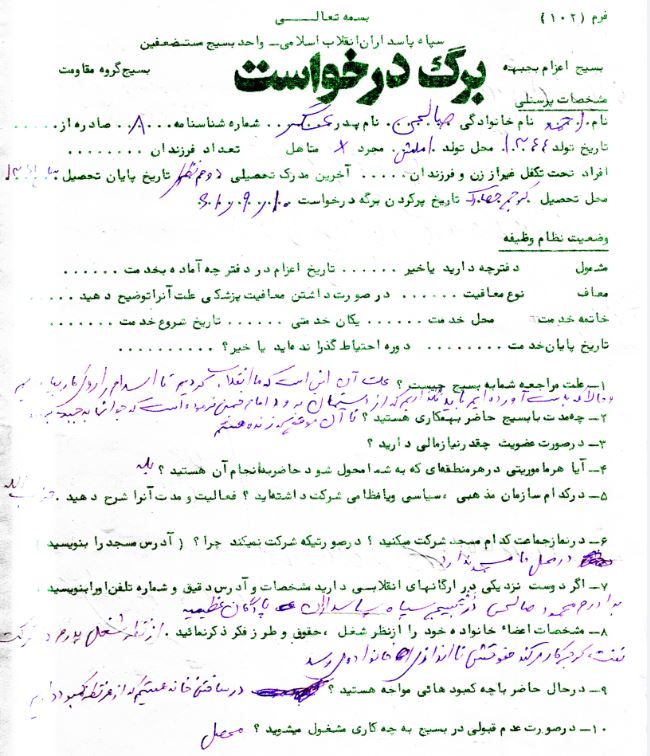 فرم (۱۰۲)
بسمه تعالی
سپاه پاسداران انقلاب اسلامی ــ واحد بسیج مستضعفین
بسیج اعزام بجبهه برگ درخواست بسیج گروه مقاومت
مشخصات پرسنلی
نام نام خانوادگی صالحی نام پدر شماره شناسنامه ۸ صادره از
تاریخ تولد ۱۳۴۴ محل تولد املش مجرد x متاهل تعداد فرزندان
افراد تحت تکفل غیر از زن و فرزندان آخرین مدرک تحصیلی تاریخ پایان تحصیل
محل تحصیل تاریخ پرکردن برگه درخواست
وضعیت نظام وظیفه
مشمول دفترچه دارید یا خیر تاریخ اعزام در دفترچه آماده بخدمت
معاف نوع معافیت در صورت داشتن معافیت پزشکی علت آنرا توضیح دهید
خاتمه خدمت محل خدمت یکان خدمتی تاریخ شروع خدمت
تاریخ پایان خدمت دوره احتیاط گذرانده اید یا خیر؟
۱ــ علت مراجعه شما به بسیج چیست؟ علت آن این است که ما انقلاب کردیم تا اسلام را
و حالا بدست آورده ایم نباید بگذاریم که از دستمان برود و امام خمینی فرموده است که جوانها به جبهه
۲ــ چه مدت با بسیج حاضر بهمکاری هستید؟ تا آن موقعی که زنده هستم
۳ــ در صورت عضویت چقدر نیاز مالی دارید؟
۴ــ آیا هر ماموریتی در هر منطقه‌ای که به شما محول شود حاضر به انجام آن هستید؟ بله
۵ــ در کدام سازمان مذهبی، سیاسی و یا نظامی شرکت داشته‌اید؟ فعالیت و مدت آنرا شرح دهید. حزب الله
۶ــ در نماز جماعت کدام مسجد شرکت میکنید؟ در صورتیکه شرکت نمیکنید چرا؟ (آدرس مسجد را بنویسید)
در محل ما مسجد ندارد
۷ــ اگر دوست نزدیکی در ارگانهای انقلابی دارید مشخصات و آدرس دقیق و شماره تلفن او را بنویسید.
برادرم محمود صالحی از بسیج سپاه پاسداران پادگان عظیمیه
۸ــ مشخصات اعضاء خانواده خود را از نظر شغل، حقوق و طرز فکر ذکر نمائید. از نظر شغل پدرم در شرکت
نفت کرج کار میکند حقوقش تا اندازه‌ای خانواده می رسد
۹ــ در حال حاضر با چه کمبودهائی مواجه هستید؟ در ساختن خانه هستیم که از هر نظر کمبود داریم
۱۰ــ در صورت عدم قبولی در بسیج به چه کاری مشغول میشوید؟ محصل